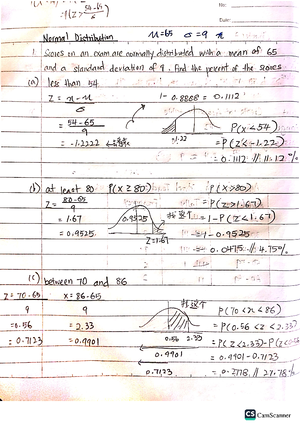 P(Z > 54-65
No:
Date:
Normal Distribution   μ=65   σ=9   x
1. Scores on an exam are normally distributed with a mean of 65
and a standard deviation of 9. Find the percent of the scores
(a) less than 54
Z = x-μ / σ   1- 0.8888 = 0.1112
= 54-65 / 9   P(x<54)
= -1.2222   -1.22   = P(Z<-1.22)
= 0.1112 // 11.12%
(b) at least 80   P(x≥80)   P(x>80)
Z = 80-65 / 9   = P(Z>1.67)
= 1.67   0.9525   找这个   = 1-P(Z<1.67)
= 0.9525   Z=1.67   = 1-0.9525
= 0.0475 // 4.75%
(c) between 70 and 86
Z = 70-65 / 9   x = 86-65 / 9   找这个   P(70<x<86)
= 0.56   = 2.33   0.56   2.33   = P(0.56<Z<2.33)
= 0.7123   = 0.9901   = P(Z<2.33)-P(Z<0.56
0.9901   = 0.9901-0.7123
0.7123   = 0.2778 // 27.78%
CS CamScanner